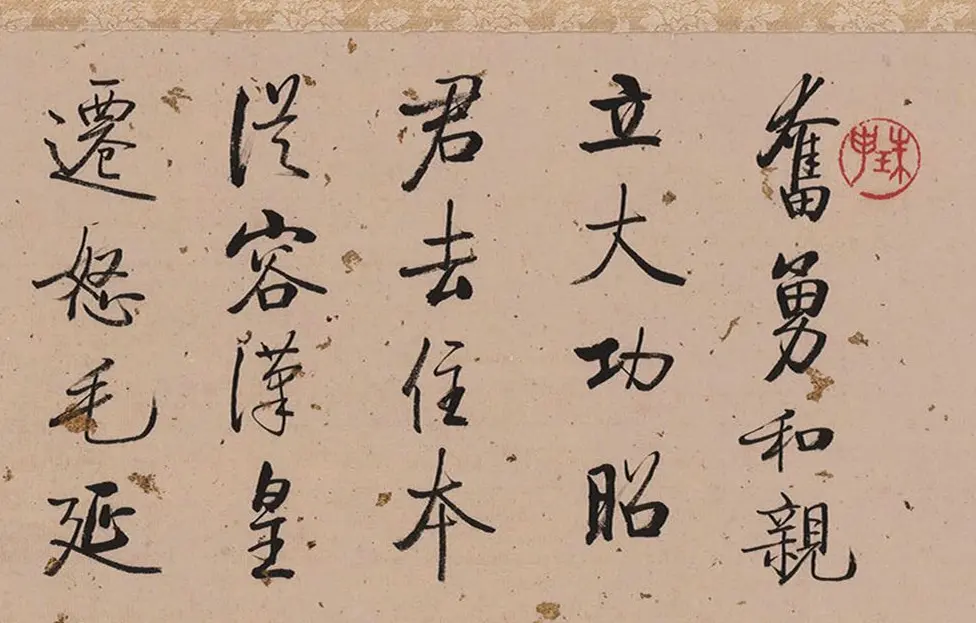 珠申
奮勇和親
立大功昭
君去住本
從容漢皇
遷怒毛延